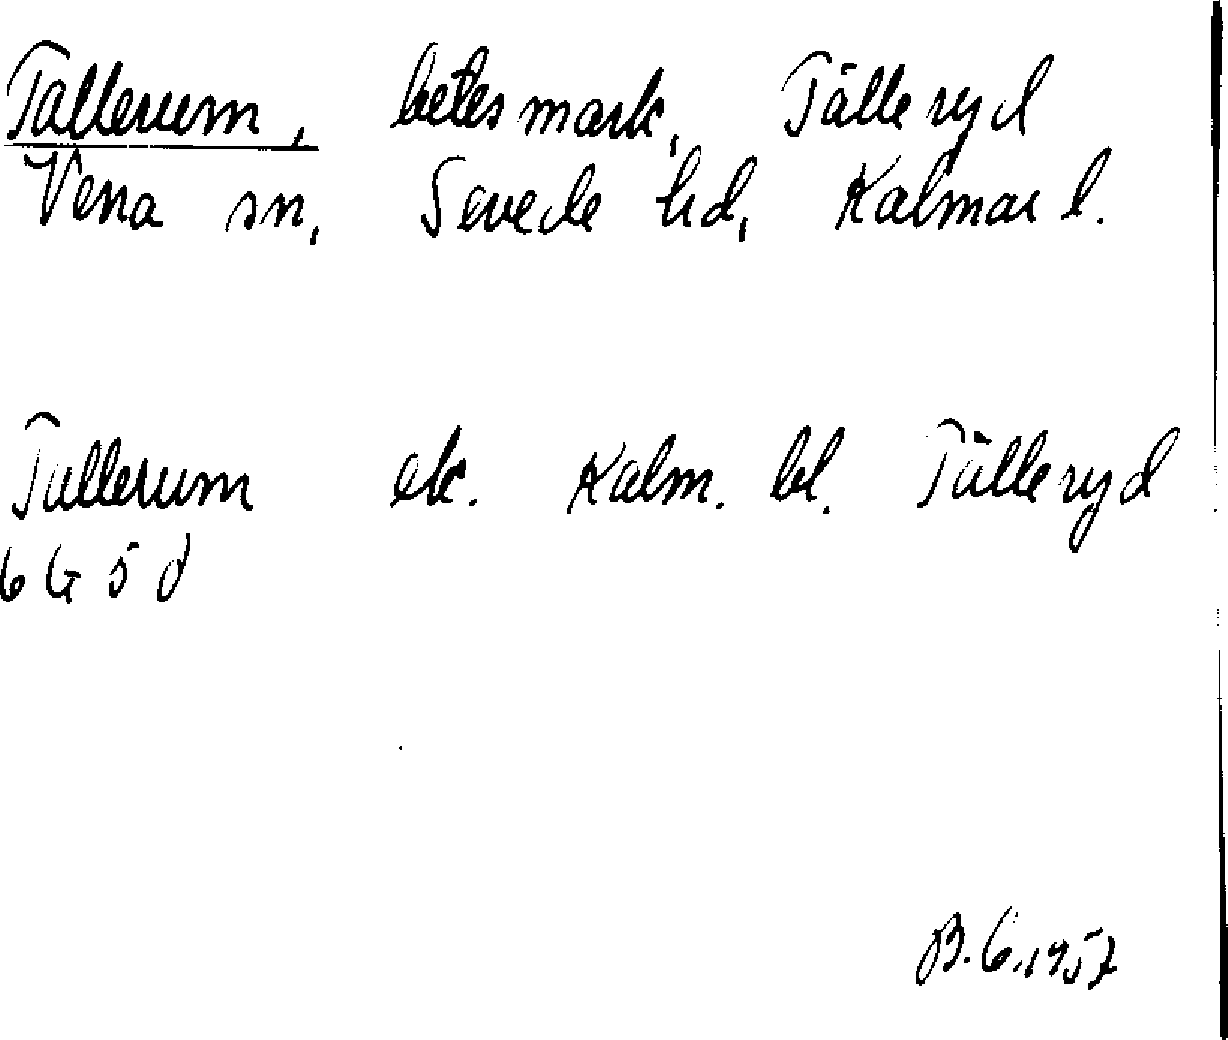 Tallerum, betesmark, Tälleryd
Vena sn, Sevede hd, Kalmar l.
Tallerum ek. Kalm. bl. Tälleryd
6 G 5 d
B. G. 1957